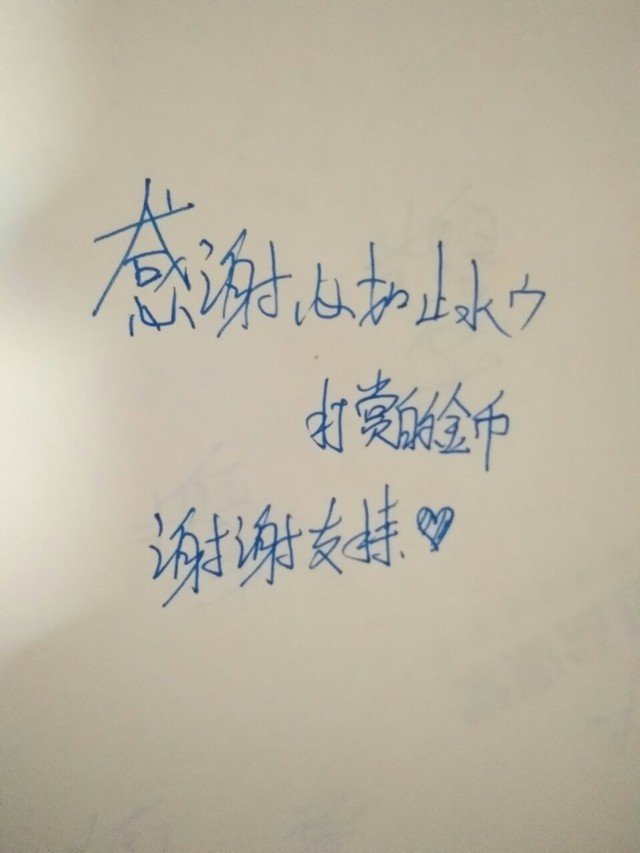 感谢心如止水ウ
打赏的金币
谢谢支持